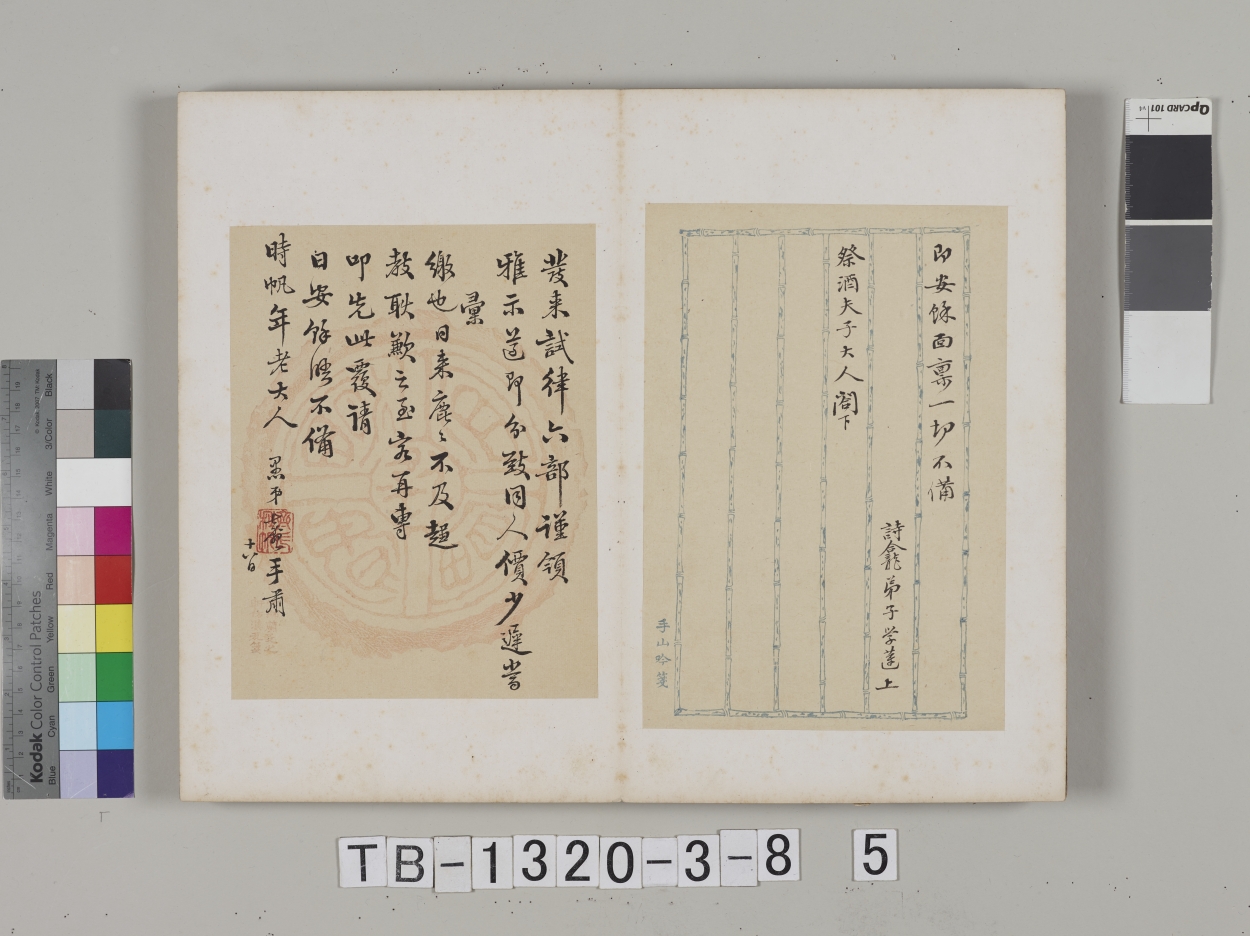 即安餘面稟一切不備
祭酒夫子大人閣下
詩龕弟子学蓮上
手山吟箋
發来試律六部謹領
雅示道即分致同人價少遲當
彙
繳也日来鹿鹿不及趨
教耿歉之至容再專
叩先此覆請
日安餘俟不備
時帆年老大人
愚弟
手肅
十八日
TB-1320-3-8 5
QPCARD 101 v4
Kodak Color Control Patches
© Kodak, 2007 TM: Kodak
Blue Cyan Green Yellow Red Magenta White 3/Color Black